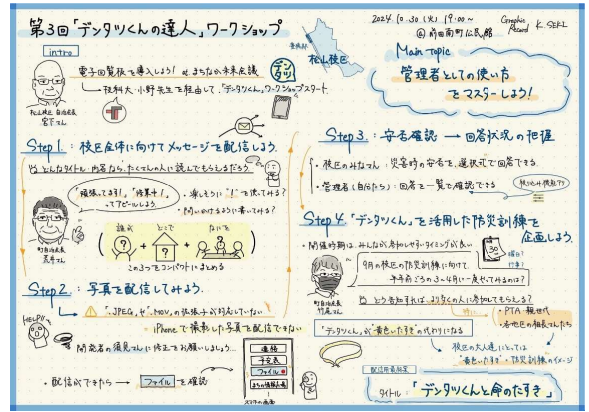 第3回「デンタツくんの達人」ワークショップ
2024.10.30(火) 19:00〜
@前田南町公民館
Graphic Record K.SEKI
intro
電子回覧板を導入しよう! at. まちなか未来会議
技科大・小野先生を経由して、「デンタツくん」ワークショップスタート
松山校区 自治会長
宮下さん
デンタツ
豊橋市
松山校区
Main topic
管理者としての使い方
をマスターしよう!
Step 1 : 校区全体に向けてメッセージを配信しよう.
どんなタイトル・内容なら、たくさんの人に読んでもらえるだろう
「頑張ってます!」「修業中!」
ってアピールしよう
・楽しそうに "!" を使ってみる?
・問いかけるように書いてみる?
町自治会長
荒井さん
誰が
どこで
なにを
この3つをコンパクトにまとめる
Step 2 : 写真を配信してみよう.
".JPEG" や ".MOV" の拡張子が対応していない
iPhoneで撮影した写真を配信できない
HELP!!
開発者の須見さんに修正をお願いしましょう...
・配信ができたら → ファイル を確認
連絡
予定表
ファイル
まちの情報人気
スマホの画面
Step 3 : 安否確認 → 回答状況の把握
・校区のみなさん : 災害時の安否を、選択式で回答できる
・管理者(自治たち) : 回答を一覧で確認できる
絞り込み機能アリ
Step 4. 「デンタツくん」を活用した防災訓練を
企画しよう.
・開催時期は、みんなが参加しやすいタイミングが良い
9月の校区の防災訓練に向けて
半年前ごろの3〜4月に一度やってみるのは?
30
曜日?
行事?
町自治会長
竹尾さん
どう告知すれば、より多くの人に参加してもらえる?
特に...
・PTA・親世代
・各地区の組長さんたち
「デンタツくん」が "黄色いたすき" の代わりになる
校区の大人達にとっては
"黄色いたすき" = 防災訓練のイメージ
配信用最終案
タイトル : 「デンタツくんと命のたすき」